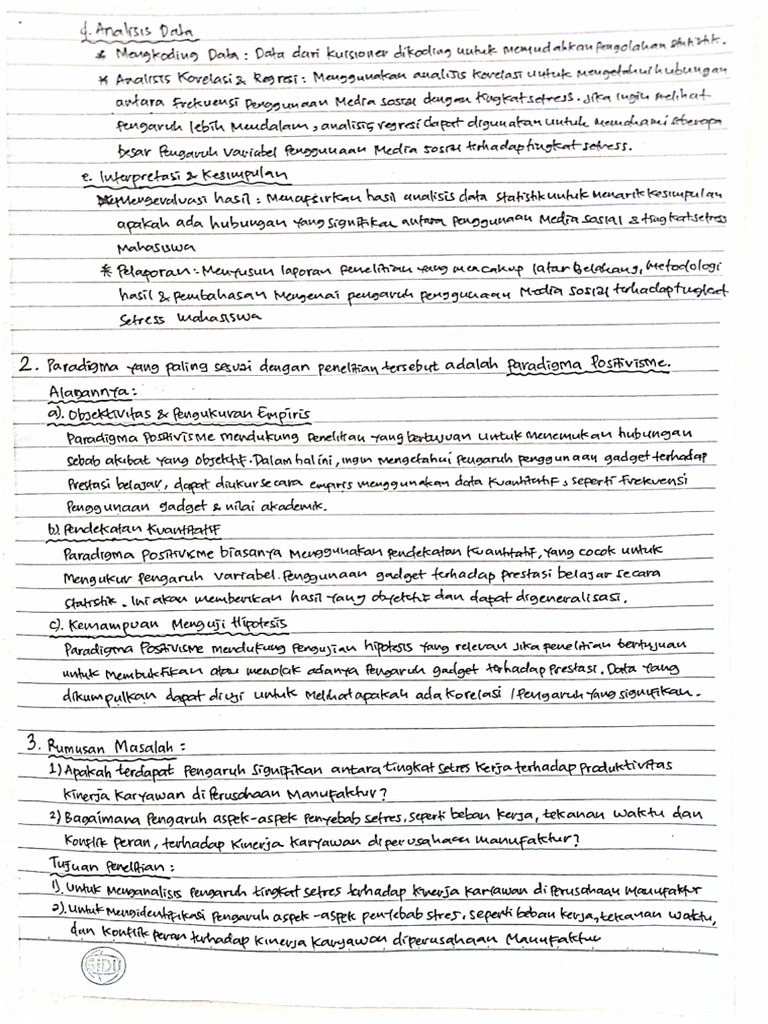 d. Analisis Data
* Mengkoding Data : Data dari kuisioner dikoding untuk memudahkan pengolahan statistik.
* Analisis Korelasi & Regresi : Menggunakan analisis korelasi untuk mengetahui hubungan
antara Frekuensi Penggunaan Media sosial dengan tingkat setress. Jika ingin melihat
pengaruh lebih mendalam, analisis regresi dapat digunakan untuk memahami seberapa
besar Pengaruh variabel Penggunaan Media sosial terhadap tingkat setress.
e. Interpretasi & Kesimpulan
* Mengevaluasi hasil : Menafsirkan hasil analisis data statistik untuk menarik kesimpulan
apakah ada hubungan yang signifikan antara penggunaan Media sosial & tingkat setress
Mahasiswa
* Pelaporan : Menyusun laporan penelitian yang mencakup latar belakang, Metodologi
hasil & pembahasan Mengenai pengaruh penggunaan Media sosial terhadap tingkat
Setress Mahasiswa
2. Paradigma yang paling sesuai dengan penelitian tersebut adalah Paradigma Positivisme.
Alasannya :
a). Objektivitas & Pengukuran Empiris
Paradigma Positivisme mendukung penelitian yang bertujuan untuk menemukan hubungan
sebab akibat yang objektif. Dalam hal ini, ingin mengetahui pengaruh penggunaan gadget terhadap
Prestasi belajar, dapat diukur secara empiris menggunakan data kuantitatif, seperti frekuensi
Penggunaan gadget & nilai akademik.
b). Pendekatan Kuantitatif
Paradigma Positivisme biasanya Menggunakan pendekatan kuantitatif, yang cocok untuk
Mengukur pengaruh variabel Penggunaan gadget terhadap prestasi belajar secara
statistik. Ini akan memberikan hasil yang objektif dan dapat digeneralisasi.
c). Kemampuan Menguji Hipotesis
Paradigma Positivisme mendukung Pengujian hipotesis yang relevan jika penelitian bertujuan
untuk Membuktikan atau menolak adanya Pengaruh gadget terhadap Prestasi. Data yang
dikumpulkan dapat diuji untuk Melihat apakah ada korelasi / Pengaruh yang signifikan.
3. Rumusan Masalah :
1) Apakah terdapat Pengaruh Signifikan antara tingkat setres kerja terhadap Produktivitas
Kinerja Karyawan di Perusahaan Manufaktur?
2) Bagaimana Pengaruh aspek-aspek penyebab setres, seperti beban kerja, tekanan waktu dan
Konflik peran, terhadap Kinerja Karyawan diperusahaan manufaktur?
Tujuan Penelitian :
1). Untuk Menganalisis Pengaruh tingkat setres terhadap kinerja karyawan di Perusahaan Manufaktur
2). Untuk Mengidentifikasi Pengaruh aspek-aspek penyebab stres, seperti beban kerja, tekanan waktu,
dan Konflik peran terhadap Kinerja Karyawan diperusahaan Manufaktur
SIDU